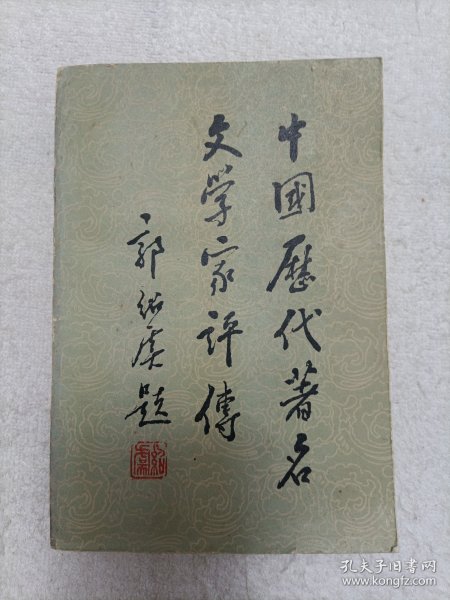 中國歷代著名
文学家評傳
郭紹虞題
紹虞
孔夫子旧书网
www.kongfz.com